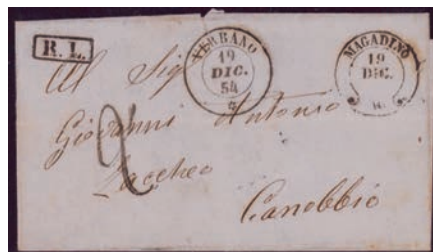 R. L.
VERBANO
19
DIC.
54
MAGADINO
19
DIC.
Al Sig
Giovanni Antonio
2
Zaccheo
Canobbio